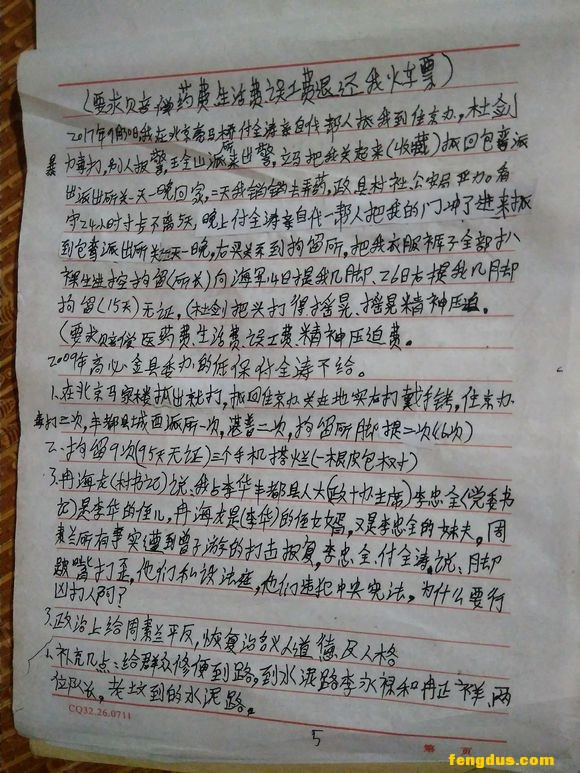 (要求贝音偿药费生活费误工费退还我火车票)
2017年9月10日我在北京高旦桥付全涛亲自代邦人抓我到住京办,杜剑
暴力毒打,别人报警,王金山派来出警,立马把我关起来(收藏)抓回包鸾派
出派出所关一天一晚回家,二天我销销去弄药,政具村社公安局严力看
守24小时寸步不离妖,晚上付全涛亲自代一帮人把我的门冲了进来抓
到包鸾派出所关一天一晚,右买关系到拘留所,把我衣服裤子全部扒
裸生进控拘留(所长)向海军4日提我几脚、26日右提我几脚
拘留(15天)无证,(杜剑)把头打得摇晃、摇晃精神压迫。
(要求贝音偿医药费生活费误工费精神压迫费。
2009年高必金县委办的低保付全涛不给。
1、在北京马家楼抓出杜打,抓回住京办关在地实右打戴手铐,住京办
毒打二次,丰都县城西派所一次,湛普二次,拘留所脚提二次(6次)
二、拘留9次(95天无证)三个手机搭烂(一根皮包权寸)
3、冉海龙(村书记)说、我占李华丰都县人大(政十办主席)李忠全(党委书
记)是李华的侄儿,冉海龙是(李华)的侄女婿,又是李忠全的妹夫。周
素兰所有事实遭到曾子游的打击报复,李忠全、付全涛说、月却
跛嘴打歪,他们私设法庭,他们违犯中央宪法,为什么要行
凶打人冈?
3、政治上给周素兰平反,恢复治名义人道德及人格
1、补充几点:给群众修便到路,到水泥路李永禄和冉正祥、两
位队长,老坟到的水泥路。
CQ32.26.0711
5
第 页
fengdus.com